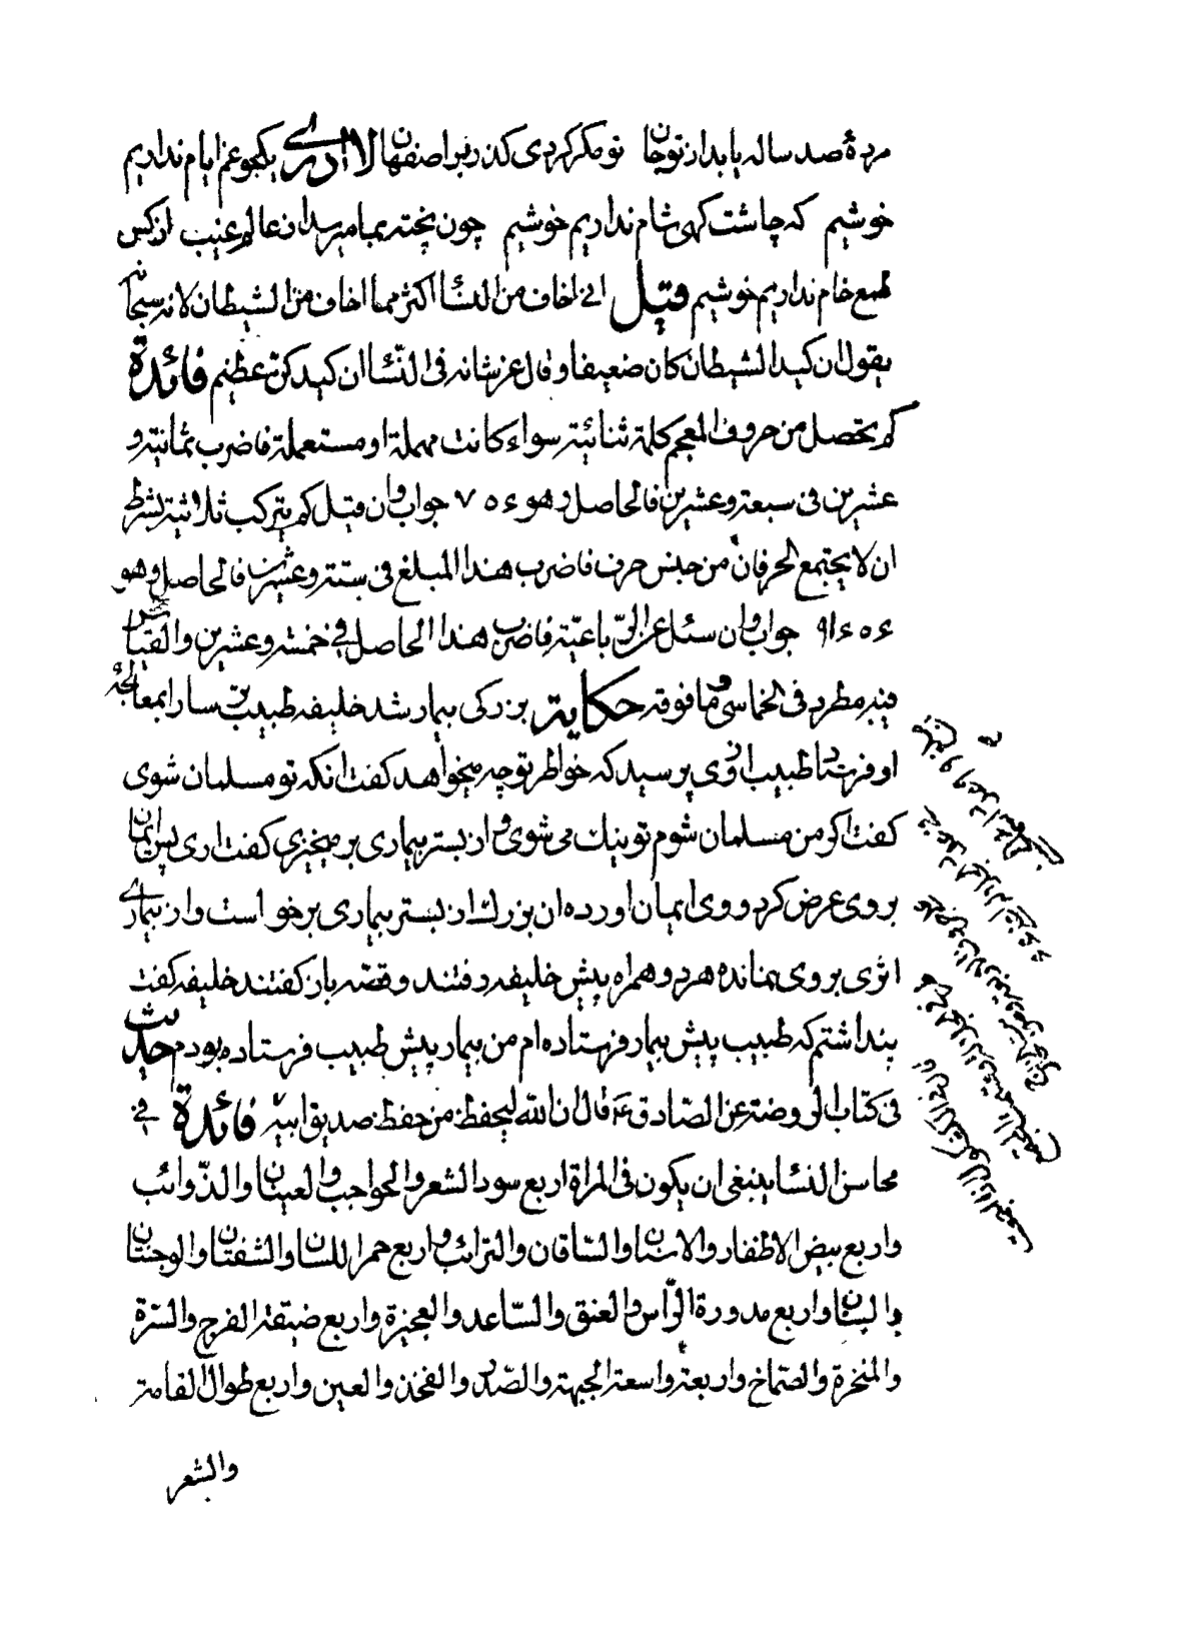 مردهٔ صد ساله یابد از تو جان تو مکر کردی گذر بر اصفهان لا ادری یکجو غم ایام نداریم
خوشیم که چاشت کهی شام نداریم خوشیم چون پخته بما میرسد از عالم غیب از کس
طمع خام نداریم خوشیم قیل انی اخاف من النساء اکثر مما اخاف من الشیطان لانه سبحانه
یقول ان کید الشیطان کان ضعیفا و قال عز شانه فی النساء ان کیدکن عظیم فائدة
کم یحصل من حروف المعجم کلمة ثنائیة سواء کانت مهملة او مستعملة فاضرب ثمانیة و
عشرین فی سبعة و عشرین فالحاصل و هو ۷۵۶ جواب وان قیل کم یترکب ثلاثیة بشرط
ان لا یجتمع الحرفان من جنس حرف فاضرب هذا المبلغ فی ستة و عشرین فالحاصل و هو
۱۹۶۵۶ جواب وان سئل عن الرباعیة فاضرب هذا الحاصل فی خمسة و عشرین والقیاس
فیه مطرد فی الخماسی و ما فوقه حکایة بزرکی بیمار شد خلیفه طبیب ترسا را بمعالجهٔ
او فرستاد طبیب از وی پرسید که خواطر تو چه میخواهد کفت انکه تو مسلمان شوی
کفت اکر من مسلمان شوم تو نیک می شوی و از بستر بیماری بر میخیزی کفت اری پس ایمان
بر وی عرض کرد و وی ایمان اورد ان بزرک از بستر بیماری برخواست و از بیماری
اثری بر وی نمانده هر دو همراه پیش خلیفه رفتند و قصه باز کفتند خلیفه کفت
پنداشتم که طبیب پیش بیمار فرستاده ام من بیمار پیش طبیب فرستاده بودم حدیث
فی کتاب الروضة عن الصادق ع قال ان الله لیحفظ من حفظ صدیق ابیه فائدة فی
محاسن النساء ینبغی ان یکون فی المراة اربع سود الشعر والحواجب والعینان والذوائب
واربع بیض الاظفار والاسنان والساقان والترائب واربع حمر اللسان والشفتان والوجنتان
واللسان واربع مدورة الراس والعنق والساعد والعجیزة واربع ضیقة الفرج والسرة
والمنخرة والصماخ واربعة واسعة الجبهة والصدر والفخذ والعین واربع طوال القامة
والشعر